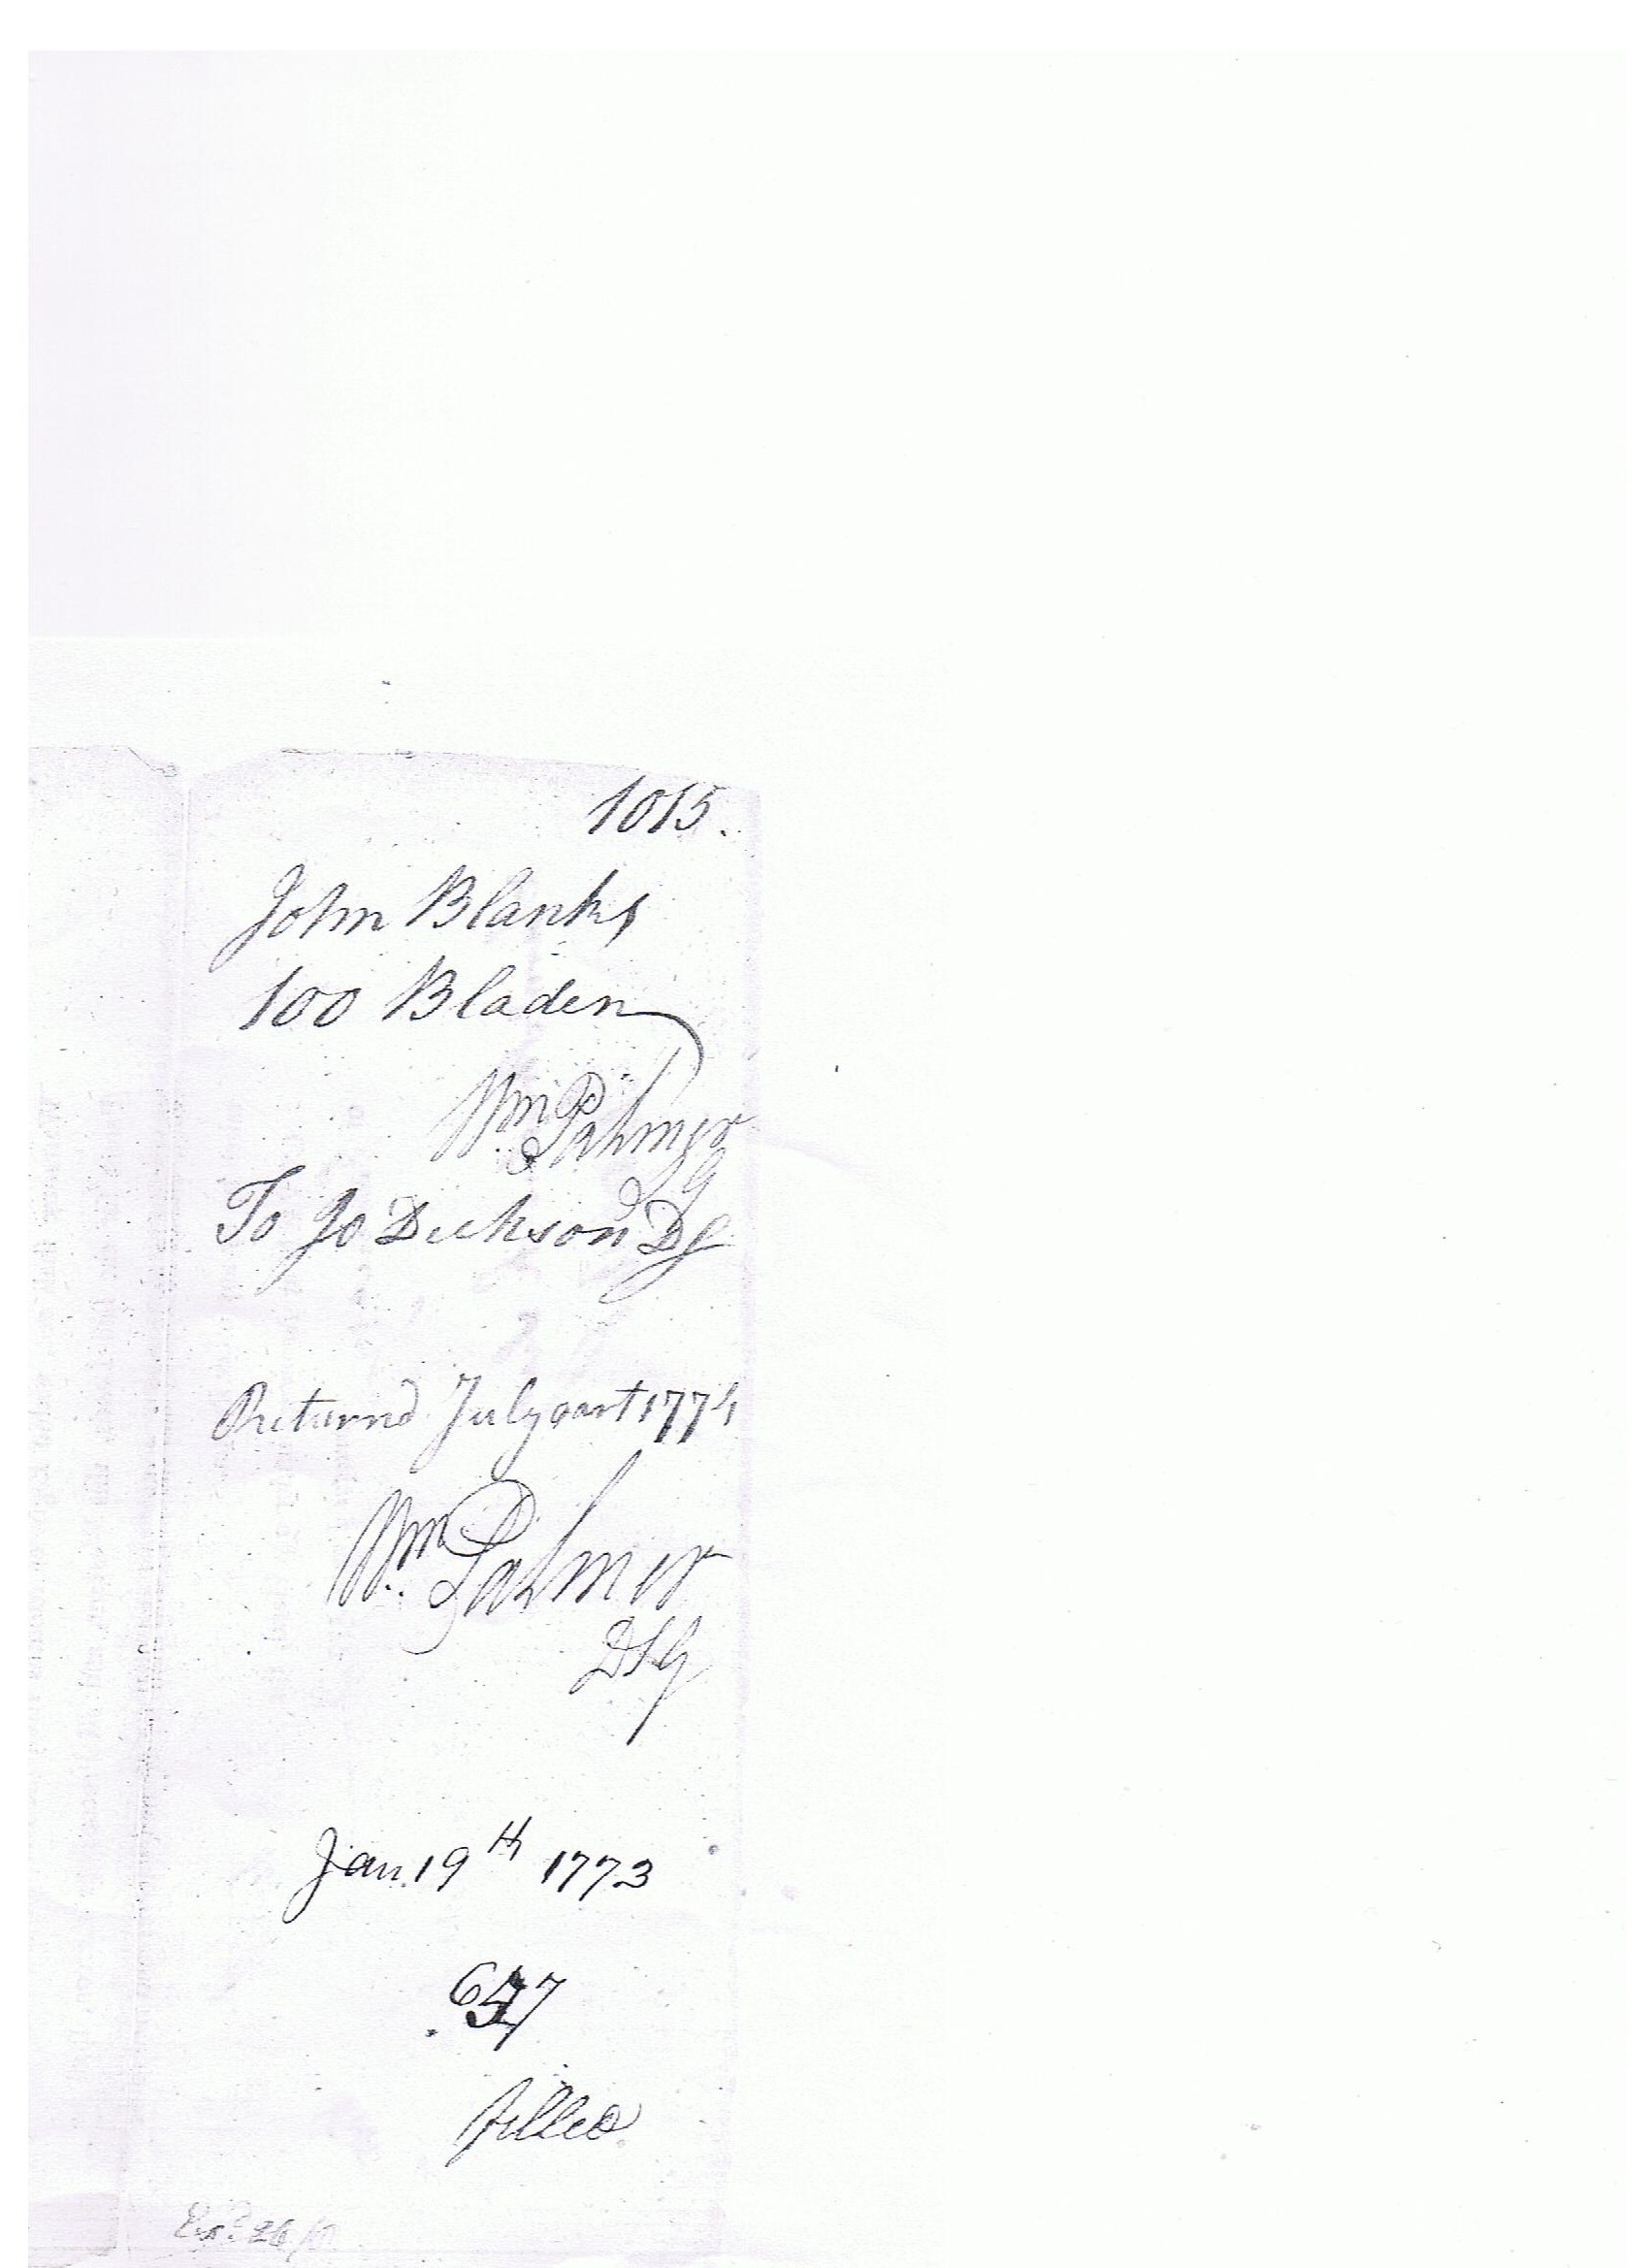 1015.
John Blanks
100 Bladen
Wm. Palmer
SG
To Jo Dickson DS
Returnd July 1774
Wm. Palmer
DSG
Jan. 19th 1773
filled